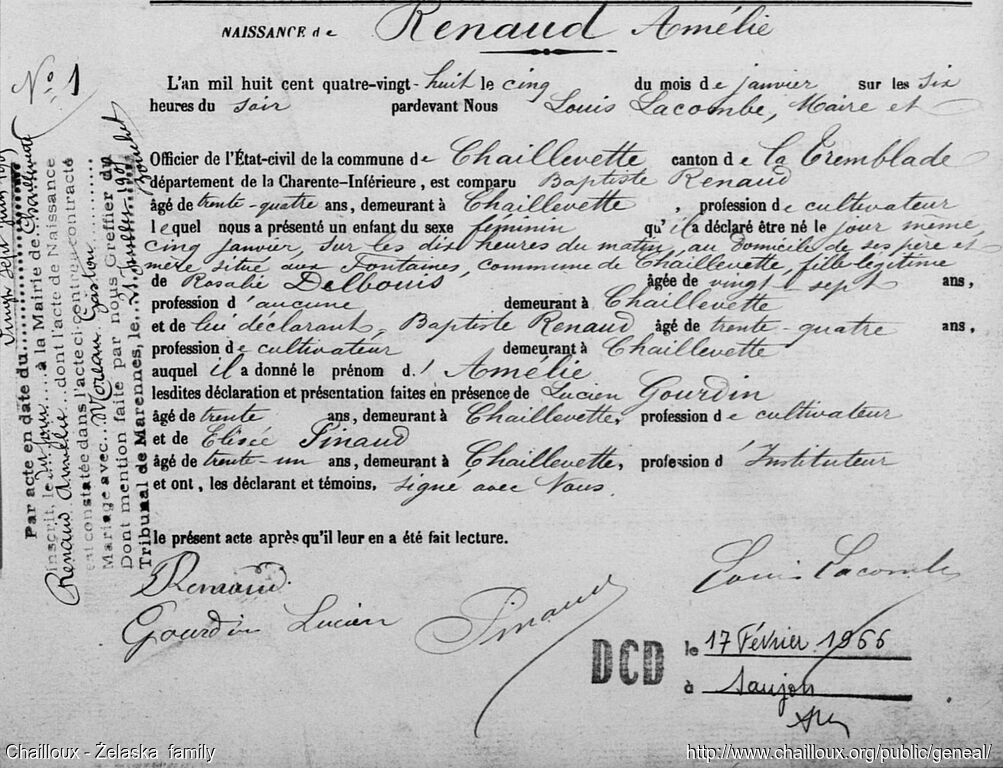 NAISSANCE de Renaud Amélie
N° 1
L'an mil huit cent quatre-vingt-huit le cinq du mois de janvier sur les six
heures du soir pardevant Nous Louis Lacombe, Maire et
Officier de l'État-civil de la commune de Chaillevette canton de la Tremblade
département de la Charente-Inférieure, est comparu Baptiste Renaud
âgé de trente-quatre ans, demeurant à Chaillevette, profession de cultivateur
lequel nous a présenté un enfant du sexe féminin qu'il a déclaré être né le jour même,
cinq janvier, sur les dix heures du matin, au domicile de ses père et
mère situé aux Fontaines, commune de Chaillevette, fille légitime
de Rosalie Delbouis âgée de vingt-sept ans,
profession d'aucune demeurant à Chaillevette
et de lui déclarant, Baptiste Renaud âgé de trente-quatre ans,
profession de cultivateur demeurant à Chaillevette
auquel il a donné le prénom d' Amélie
lesdites déclaration et présentation faites en présence de Lucien Gourdin
âgé de trente ans, demeurant à Chaillevette, profession de cultivateur
et de Elisée Pinaud
âgé de trente-un ans, demeurant à Chaillevette, profession d'Instituteur
et ont, les déclarant et témoins, signé avec Nous.
le présent acte après qu'il leur en a été fait lecture.
Renaud
Louis Lacombe
Gourdin Lucien
Pinaud
DCD le 17 Février 1966
à Saujon
Par acte en date du vingt sept juin
inscrit, le à la Mairie de Chaillevette
Renaud Amélie dont l'acte de Naissance
est constatée dans l'acte ci-contre a contracté
Mariage avec Moreau Gaston
Dont mention faite par nous Greffier du
Tribunal de Marennes, le Juillet
Chailloux - Želaska family
http://www.chailloux.org/public/geneal/